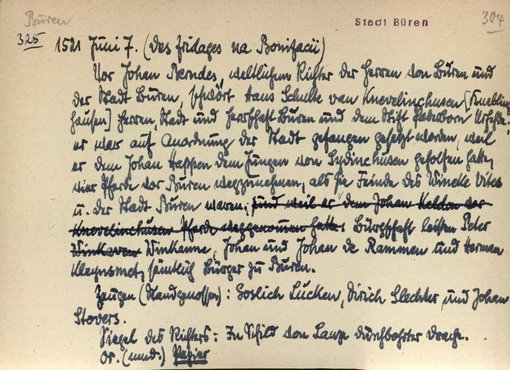 Büren
Stadt Büren
304
325
1521 Juni 7. (des fridages na Bonifacii)
Vor Johan Berndes, weltlichem Richter der Herren von Büren und
der Stadt Büren, schwört Hans Schulte van Knevelinghusen [Knebling
hausen] Herren, Stadt und Herrschaft Büren und dem Stift Paderborn Urfehde.
er war auf Anordnung der Stadt gefangen gesetzt worden, weil
er dem Johan Happen dem Jungen von Sydinchusen geholfen hatte,
vier Pferde vor Büren wegzunehmen, als sie Feinde des Wineke Vites
u. der Stadt Büren waren, und weil er dem Johan der
Knevelinchusen Pferde weggenommen hatte. Bürgschaft leisten Peter
Winkanne, Johan und Johan de Rammen und Herman
Kleynsmet, sämtlich Bürger zu Büren.
Zeugen (Standgenossen): Lucken, Dirich Slechter und Johan
Stovers.
Siegel des Richters: In Schild von Lanze durchbohrter Drache.
Or. (mnd.) Papier